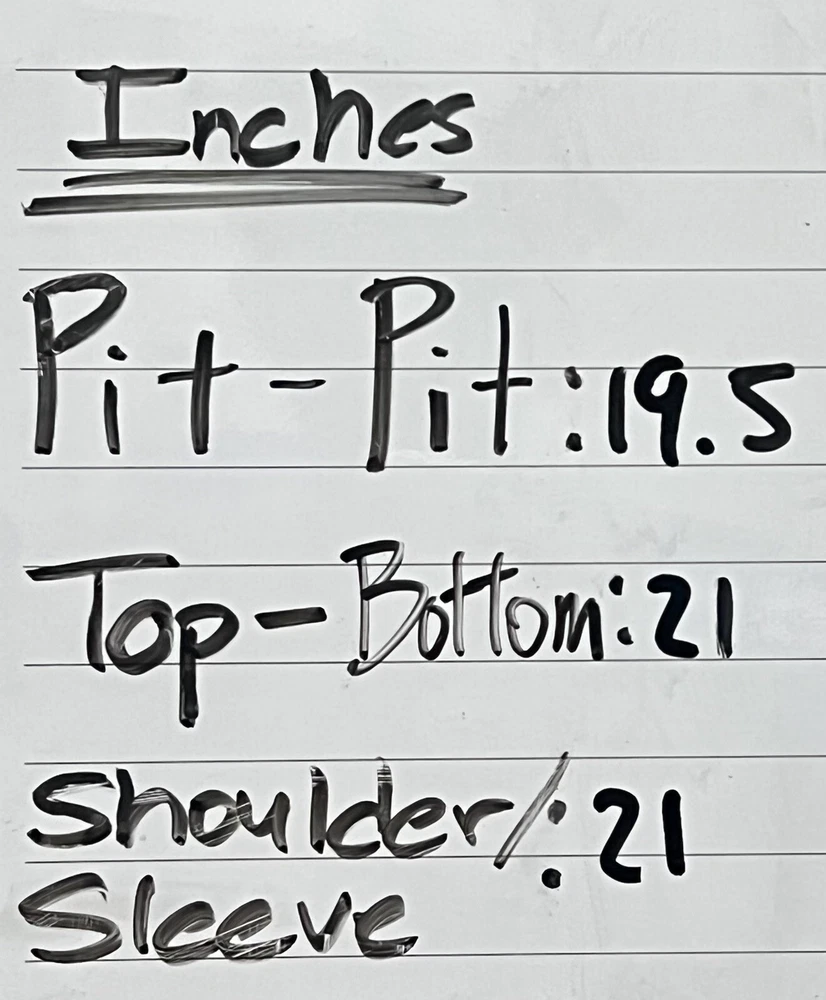 Inches
Pit-Pit:19.5
Top-Bottom:21
Shoulder/:21
Sleeve